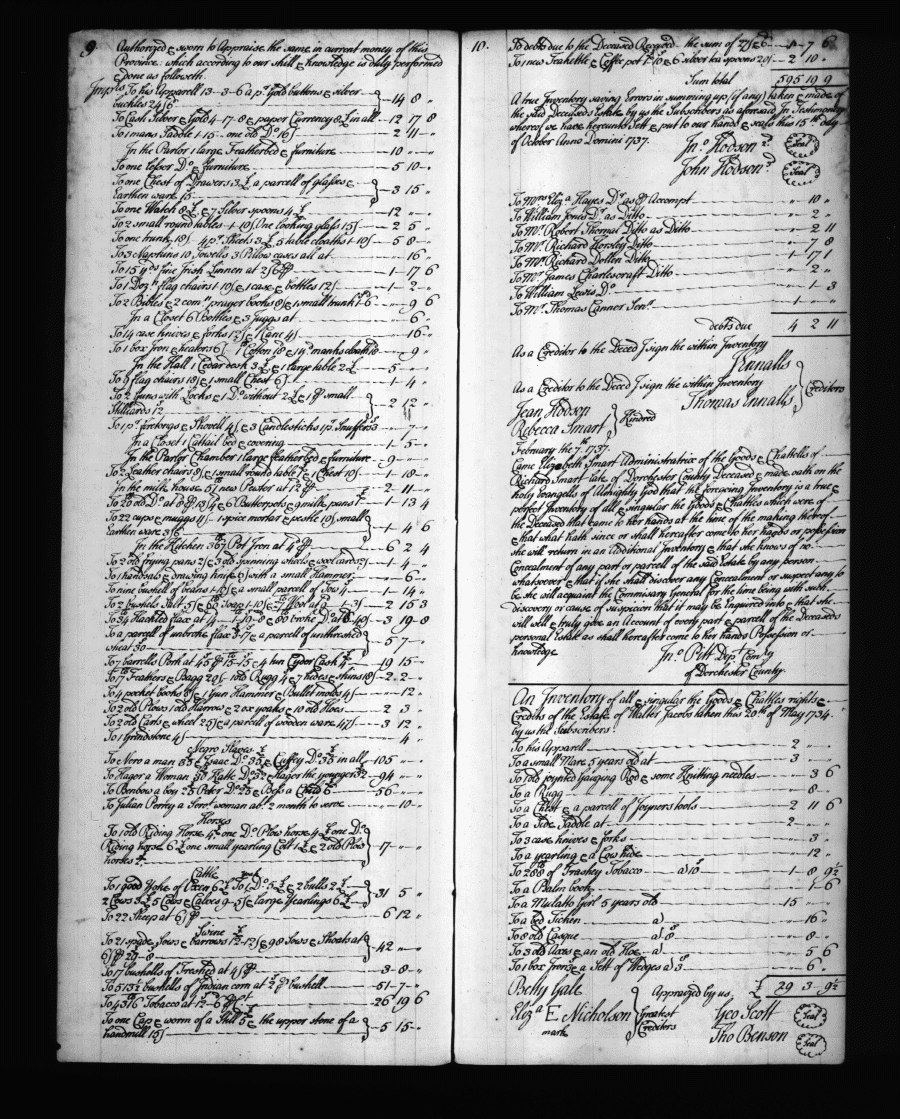 9.
Authorized & sworn to Appraise the same in current money of this
Province which according to our skill & knowledge is duly performed
& done as followeth.
Imp:s To his Apparell 13-3-6 a p:r Gold buttons & silver
buckles 24/6 14 8 "
To Cash Silver & Gold 4-17-8 & paper Currency 8£ in all 12 17 8
To 1 mans Saddle 1-15- one old D:o 16/ 2 11 "
In the Parlor 1 large Featherbed & furniture 10 " "
To one lesser D:o & furniture 5 10 "
To one Chest of Drawers 3£ a parcell of glasses &
Earthen ware 15/ 3 15 "
To one Watch 8£ & 7 Silver spoons 4£ 12 " "
To 2 small round tables 1-10/ One looking glass 15/ 2 5 "
To one trunk 18/ 4 p:rs Sheets 3£ 5 table cloaths 1-10/ 5 8 "
To 3 Napkins 10 Towells 3 Pillow cases all at 16 "
To 15 y:ds fine Irish Linnen at 2/6 1 17 6
To 1 Doz:n flag chairs 1-10/ & 1 case & bottles 12/ 1 2 "
To 2 Bibles & 2 com:n prayer books 8/ & 1 small trunk 1-6 " 9 6
In a Closet 6 Bottles & 3 Juggs at 6 "
To 14 case knives & forks 12/ & 1 Cane 4/ 16 "
To 1 box Iron & heaters 6/ 9 "
In the Hall 1 Cedar desk 3£ & 1 large table 2£ 5 " "
To 9 flag chairs 18/ & 1 small Chest 6/ 1 4 "
To 2 Guns with Locks & 1 D:o without 2£ & 1 p:r small
Stilliards 12 2 12 "
To 1 p:r firetongs & Shovel 4/ & 3 Candlesticks 1 p:r Snuffers 3 7 "
In a Closet 1 Cattail bed & covering 1 5 "
In the Parlor Chamber 1 large featherbed & furniture 9 " "
To 2 Leather chairs 8/ & 1 small round table & 1 Chest 10/ 1 18 "
In the milk house 51 new Pewter at 12 2 11 "
To 20 old D:o at 8 13/4 & 6 Butterpots & 9 milk pans 1 13 4
To 22 cups & muggs 11/ 1 spice mortar & pestle 10/ small
Earthen ware 3/6 1 4 6
In the Kitchen 367 Pot Iron at 4 6 2 4
To 2 old frying pans 2/ & 3 old Spinning wheels & wool cards 1 4 "
To 1 handsaw & drawing knife 5/ with a small Hammer 6 "
To nine bushell of beans 1 & a small parcell of Tow 4/ 1 14 "
2 15 3
3 19 8
To a parcell of unbroke flax 3-7 & a parcell of unthreshed
wheat 30 5 7 "
To 7 barrells Pork at 45 15-15 & 4 tun Cyder Cask 4 19 15 "
To 17 Feathers & Bagg 20/ 1 old Rugg 4 2 2 "
To 4 pocket books 8/ & 1 gun Hammer & Bullet molds 4/ 12 "
To 2 old Plows 1 old Harrow & 2 ox yoaks & 10 old Hoes 2 3 "
To 2 old Carts & wheel 25/ & a parcell of wooden ware 47/ 3 12 "
To 1 Grindstone 4/ 4 "
Negro Slaves
To Nero a man 35 & Isaac D:o 35 & Cuffey D:o 35 in all 105 " "
To Hagar a Woman 30 Kate D:o 32 Hagar the younger 32 94 " "
To Benbow a boy 25 Peter D:o 25 & Bess a Child 6 56 " "
To Julian Perrey a Serv:t woman ab:t 2 month to serve " 10 "
Horses
To 1 old Riding Horse 4£ one D:o Plow horse 4£ one D:o
Riding horse 6£ one small yearling Colt 1£ & 2 old Plow
horses 2 17 " "
Cattle
To 1 good Yoke of Oxen 6£ 1 D:o 5£ & 2 bulls 2£
2 Cows 3£ 5 Cows & Calves 9-5/ & large Yearlings 6£ 31 5 "
To 22 Sheep at 6/ 6 12 "
Swine
To 21 spade Sows & barrows 12-12/ & 98 Sows & Shoats at
6/ 29-8 42 " "
To 17 bushells of Treshed at 4/ 3 8 "
To 513½ bushells of Indian corn at 2 bushell 51 7 "
To 4316 Tobacco at 12-6 26 19 6
To one Cap & worm of a Still 5£ the upper stone of a
handmill 15/ 5 15 "
10.
To debts due to the Deceased Received the sum of 27/6 1 7 6
To 1 new Teakettle & Coffee pot 1-10 & 6 silver tea spoons 20/ 2 10 "
Sum total 595 19 9
A true Inventory saving Errors in summing up (if any) taken & made of
the said Deceased Estate by us the Subscribers as aforesaid In Testimony
whereof we have hereunto Set & put to our hands & seals this 15th day
of October Anno Domini 1737.
Jn:o Hodson Seal
John Hodson Seal
To M:rs Eliz:a Hayes D:r as Accompt " 10 "
To William Jones D:r as Ditto " 2 "
To M:r Robert Thomas Ditto as Ditto " 2 11
To M:r Richard Horsley Ditto " 7 8
To M:r Richard Dollen Ditto 1 17 1
To M:r James Charlescraft Ditto " 2 "
To William Lewis D:o " 1 3
To M:r Thomas Canner Sen:r 1 " "
debts due 4 2 11
As a Creditor to the Deced I sign the within Inventory
J Ennalls
As a Creditor to the Deced I sign the within Inventory
Thomas Ennalls
Creditors
Jean Hodson
Rebecca Smart
Kindred
February the 7th 1737
Came Elizabeth Smart Administratrix of the Goods & Chattells of
Richard Smart late of Dorchester County Deceased & made oath on the
holy Evangells of Almighty God that the foregoing Inventory is a true &
perfect Inventory of all & singular the Goods & Chattles which were of
the Deceased that came to her hands at the time of the making thereof
& that what hath since or shall hereafter come to her hands or possession
she will return in an Additional Inventory & that she knows of no
Concealment of any part or parcell of the said Estate by any person
whatsoever & that if she shall discover any Concealment or suspect any to
be she will acquaint the Commisary General for the time being with such
discovery or cause of suspicion that it may be Enquired into & that she
will well & truly give an Account of every part & parcell of the Deceaseds
personal Estate as shall hereafter come to her hands Possession or
knowledge
Jn:o Pitt Dep:t Com:ry
of Dorchester County
An Inventory of all & singular the Goods & Chattles rights &
Credits of the Estate of Walter Jacobs taken this 20th of May 1734.
by us the Subscribers.
To his Apparell 2 " "
To a small Mare 5 years old at 3 " "
To 1 old joynted Gauging Rod & some Knitting needles " 3 6
To a Rugg " 8 "
To a Chest & a parcell of Joyners tools 2 11 6
To a Side Saddle at 2 " "
To 3 case knives & forks " 3 "
To a yearling & a Cow hide " 12 "
To 288 of Trashey Tobacco a 10 1 8 9½
To a Psalm book " 1 6
To a Mulatto Girl 5 years old 15 " "
To a bed Ticken a " 16 "
To 8 old Casque a " 8 "
To 3 old Axes & an old Hoe a " 5 6
To 1 box Iron & a Sett of Wedges a 3 " 6 "
£ 29 3 9½
Betty Gale
Eliz:a E Nicholson
mark
Greatest
Creditors
Appraized by us
Geo Scott Seal
Tho Benson Seal